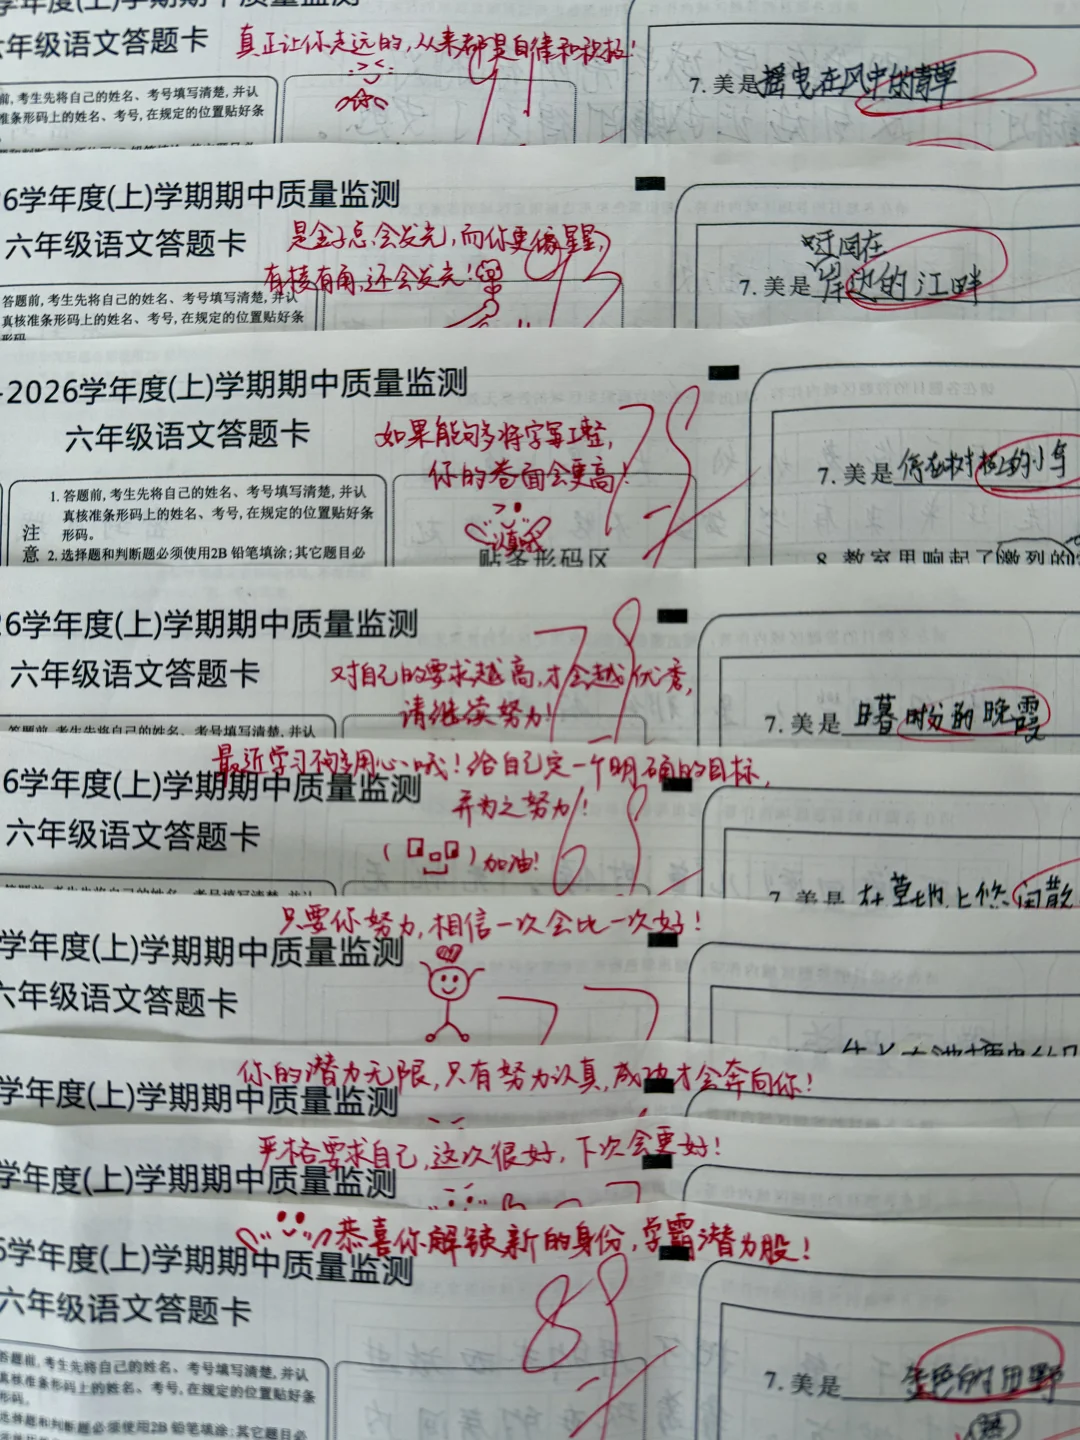 学年度(上)学期期中质量监测
六年级语文答题卡
真正让你走远的,从来都是自律和积极!
91
7. 美是摇曳在风中的青草
前,考生先将自己的姓名、考号填写清楚,并认
准条形码上的姓名、考号,在规定的位置贴好条
6学年度(上)学期期中质量监测
六年级语文答题卡
是金子总会发光,而你更像星星,
有棱有角,还会发光!
93
迂回在
7. 美是岸边的江畔
答题前,考生先将自己的姓名、考号填写清楚,并认
真核准条形码上的姓名、考号,在规定的位置贴好条
形码。
-2026学年度(上)学期期中质量监测
六年级语文答题卡
如果能够将字写工整,
你的卷面会更高!
78
7. 美是停在树枝上的小鸟
注意
1. 答题前,考生先将自己的姓名、考号填写清楚,并认
真核准条形码上的姓名、考号,在规定的位置贴好条
形码。
2. 选择题和判断题必须使用2B 铅笔填涂;其它题目必
贴条形码区
8. 教室里响起了激烈的
26学年度(上)学期期中质量监测
六年级语文答题卡
79
对自己的要求越高,才会越优秀,
请继续努力!
7. 美是日暮时分的晚霞
答题前,考生先将自己的姓名、考号填写清楚,并认
最近学习不够用心哦!给自己定一个明确的目标,
并为之努力!
6学年度(上)学期期中质量监测
六年级语文答题卡
加油!
68
7. 美是在草地上悠闲散
只要你努力,相信一次会比一次好!
学年度(上)学期期中质量监测
六年级语文答题卡
77
你的潜力无限,只有努力认真,成功才会奔向你!
学年度(上)学期期中质量监测
严格要求自己,这次很好,下次会更好!
学年度(上)学期期中质量监测
恭喜你解锁新的身份,学霸潜力股!
6学年度(上)学期期中质量监测
六年级语文答题卡
89
7. 美是金色的田野
答题前,考生先将自己的姓名、考号填写清楚,并认
真核准条形码上的姓名、考号,在规定的位置贴好条
形码。
选择题和判断题必须使用2B 铅笔填涂;其它题目必